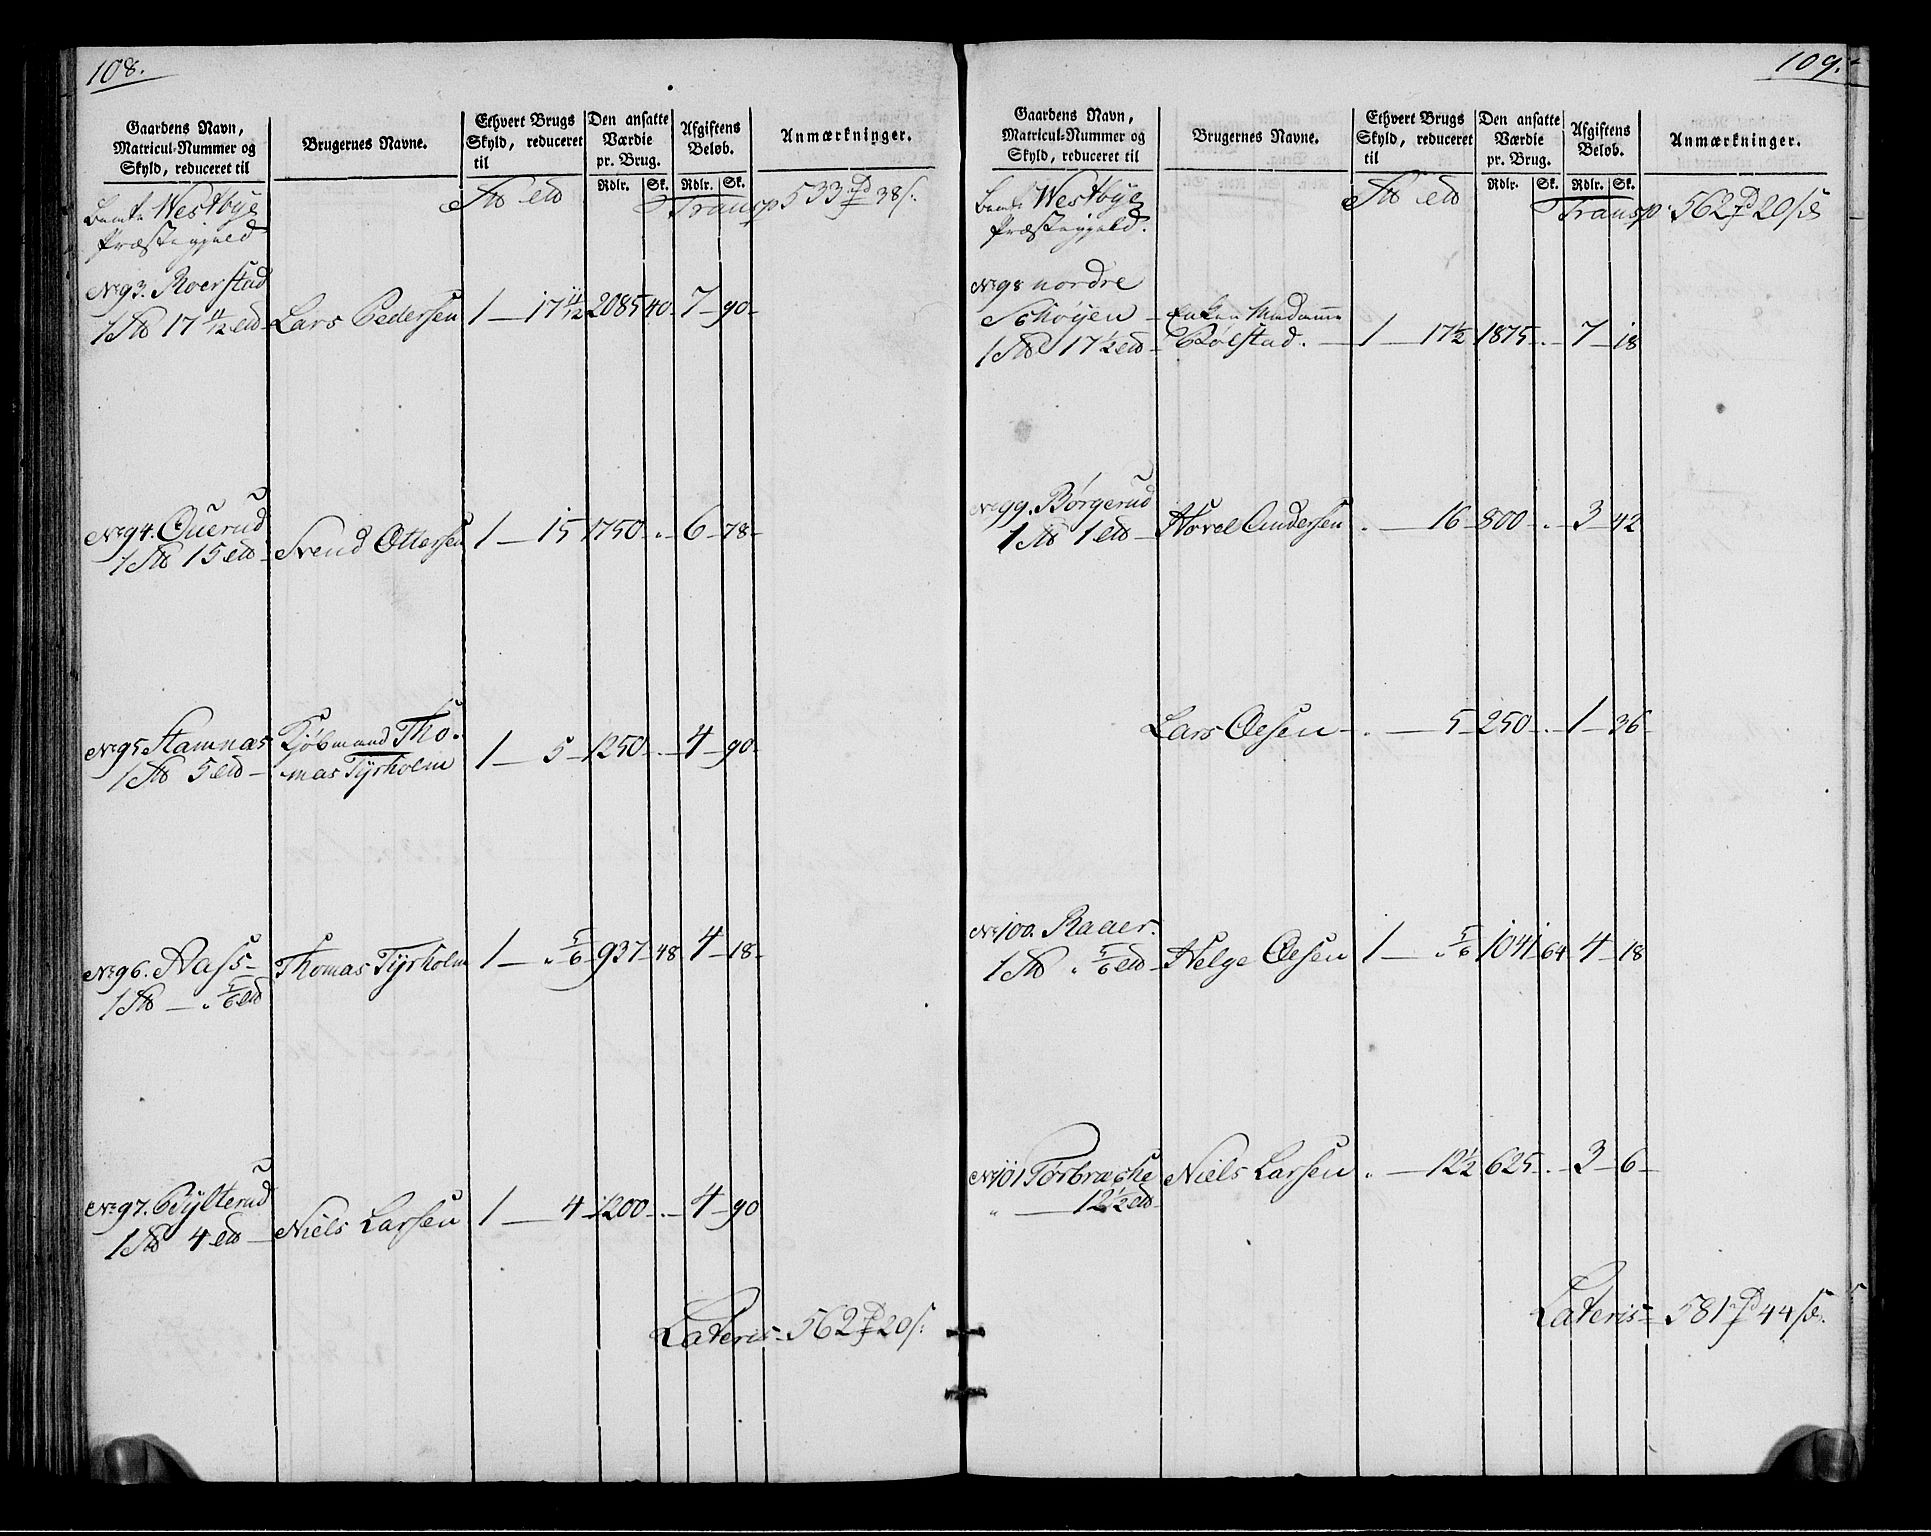 108.
Gaardens Navn,
Matricul-Nummer og
Skyld, reduceret til
Brugernes Navne.
Ethvert Brugs
Skyld, reduceret
til
Den ansatte
Værdie
pr. Brug.
Rdlr. Sk.
Afgiftens
Beløb.
Rdlr. Sk.
Anmærkninger.
Westbye
Præstegjeld
Transp 533 38
No 93. Roerstad
1 17 11/12 Lars Pedersen 1 — 17 11/12 2085 40 7 — 90
No 94. Ouerud
1 15 Svend Ottersen 1 — 15 1750 — 6 — 78
No 95 Stamnæs Kjøbmand Tho-
1 5 mas Tyrholm 1 — 5 — 1250 — 4 — 90
No 96. Aass
1 — 5/6 Thomas Tyrholm 1 — 5/6 937 48 4 — 18
No 97. Bylterud
1 4 Niels Larsen 1 — 4 1200 — 4 — 90
Lateris 562 20
109.
Gaardens Navn,
Matricul-Nummer og
Skyld, reduceret til
Brugernes Navne.
Ethvert Brugs
Skyld, reduceret
til
Den ansatte
Værdie
pr. Brug.
Rdlr. Sk.
Afgiftens
Beløb.
Rdlr. Sk.
Anmærkninger.
Westbye
Præstegjeld.
Transp. 562 20
No 98 nordre
Schøyen Enken Madame
1 17 1/2 Bølstad. 1 — 17 1/2 1875 — 7 — 18
No 99. Børgerud
1 1 Hovel Andersen — 16 — 800 — 3 — 42
Lars Oesen — 5 — 250 — 1 — 36
No 100. Raaer.
1 5/6 Helge Oesen 1 — 5/6 1041 64 4 — 18
No 101 Torbrache
12 1/2 Niels Larsen — 12 1/2 625 — 3 — 6
Lateris 581 44